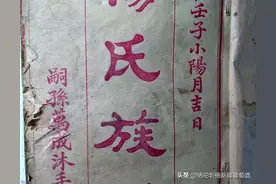 壬子小陽月吉日
氏族
嗣孫萬成沐手
头条